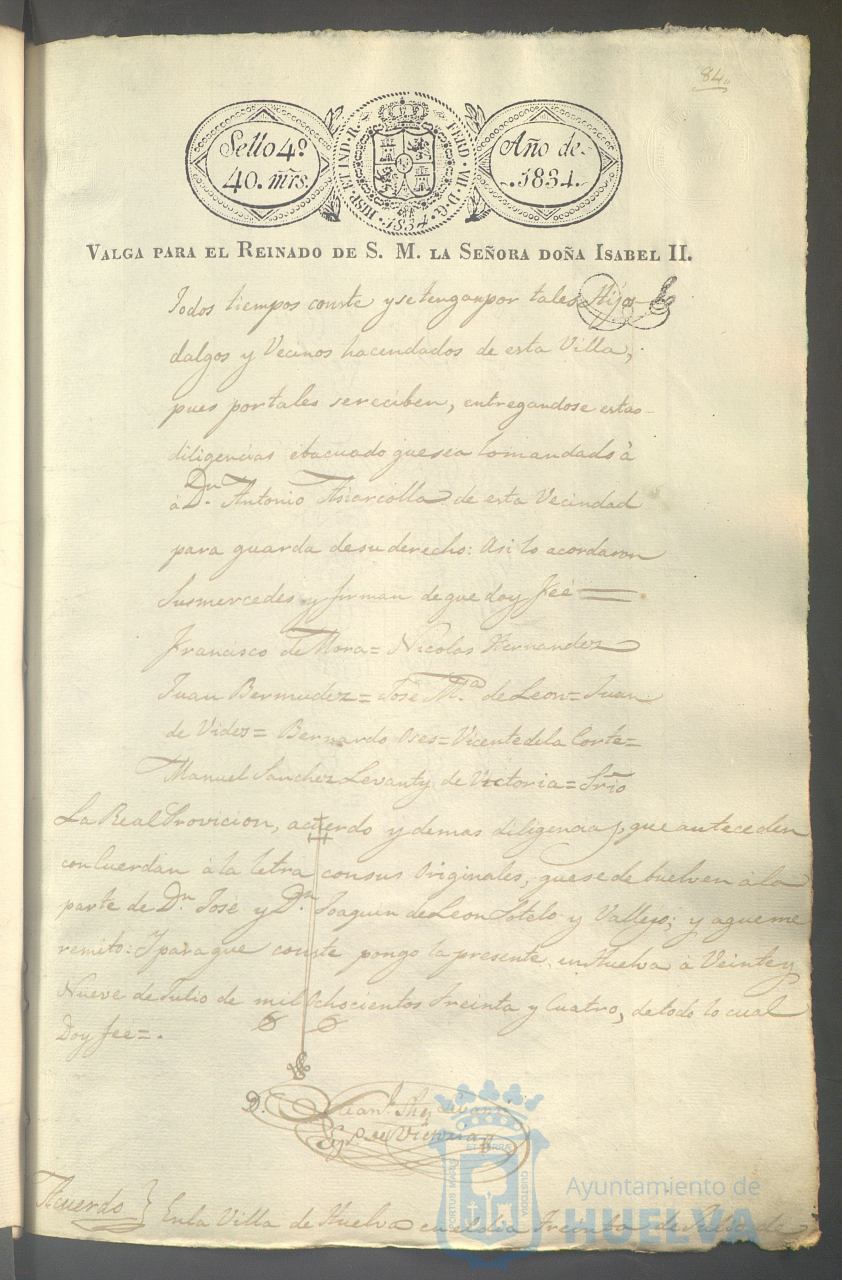 84
Sello 4º
40. mrs.
HISP. ET IND. R. FERD. VII. D. G.
1834
Año de
1834.
VALGA PARA EL REINADO DE S. M. LA SEÑORA DOÑA ISABEL II.
Todos tiempos conste y se tengan por tales Hijos
dalgos y Vecinos hacendados de esta Villa,
pues por tales se reciben, entregandose estas
diligencias ebacuado que sea lo mandado à
à Dn. Antonio de esta Vecindad
para guarda de su derecho: Asi lo acordaron
sus mercedes y firman de que doy feé =
Francisco de Mora = Nicolas Hernandez
Juan Bermudez = José Mª. de Leon = Juan
de Vides = Bernardo Oses = Vicente de la Corte =
Manuel Sanchez Levanty de Victoria = Srio
La Real Provicion, acuerdo y demas diligencias, que anteceden
concuerdan à la letra con sus Originales, que se debuelven à la
parte de Dn. José y Dn. Joaquin de Leon Sotelo y Vallejo; y a que me
remito: Y para que conste pongo la presente en Huelva à Veinte y
Nueve de Julio de mil Ochocientos treinta y Cuatro, de todo lo cual
Doy feé =.
Acuerdo } En la Villa de Huelva en el dia Treinta de Julio de
PORTUS MARIS
ET TERRE
CUSTODIA
Ayuntamiento de
HUELVA